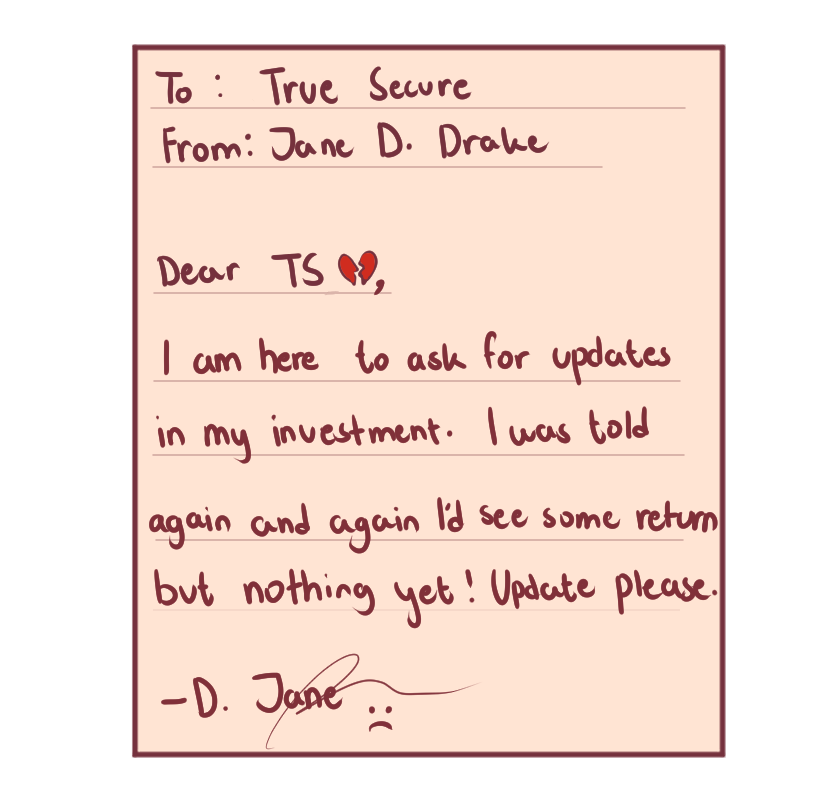 To : True Secure
From: Jane D. Drake
Dear TS 💔,
I am here to ask for updates
in my investment. I was told
again and again I'd see some return
but nothing yet! Update please.
-D. Jane :(